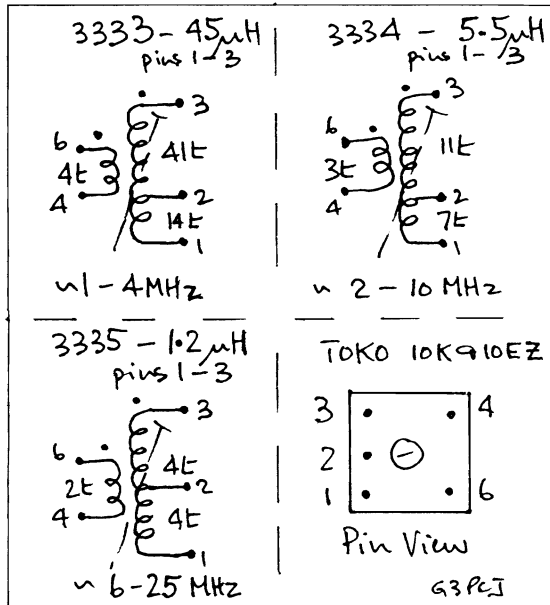 3333 - 45μH
pins 1-3
3
6
4t
41t
4
2
14t
1
~1-4 MHz
3334 - 5.5μH
pins 1-3
3
6
3t
11t
4
2
7t
1
~ 2-10 MHz
3335 - 1.2μH
pins 1-3
3
6
2t
4t
2
4
4t
1
~ 6-25 MHz
TOKO 10K & 10EZ
3 4
2
1 6
Pin View
G3PCJ